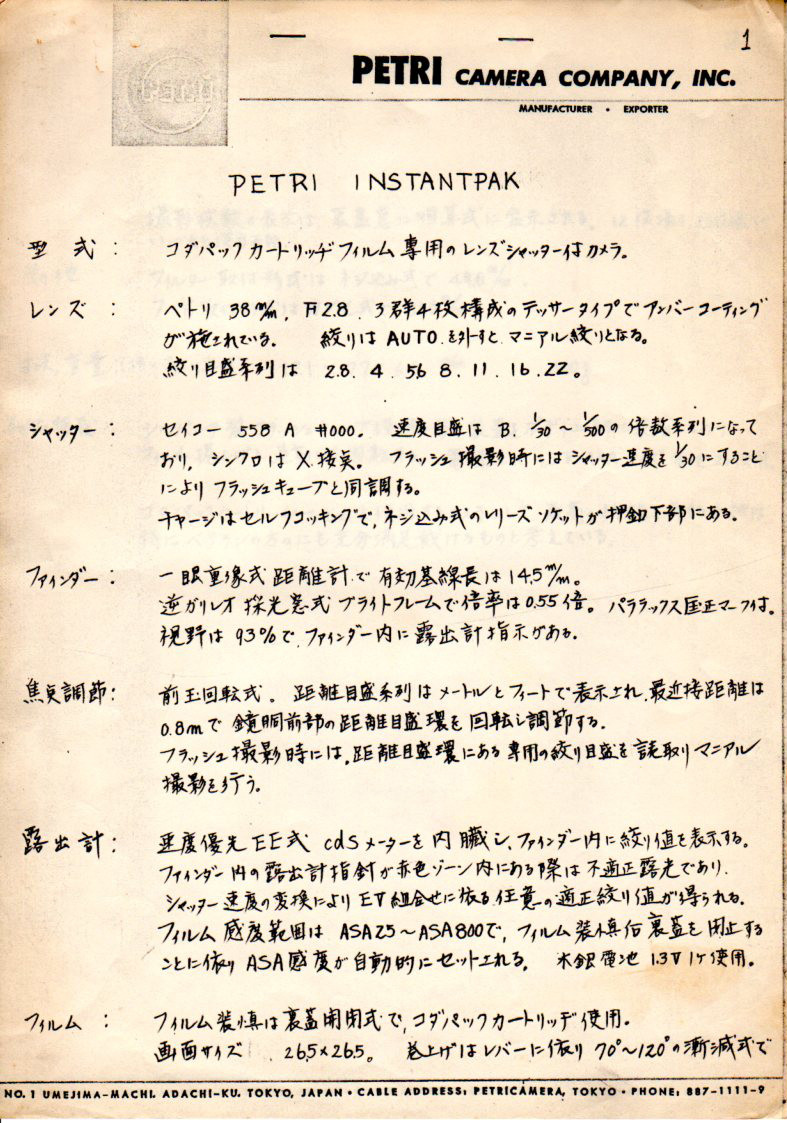 1
PETRI CAMERA COMPANY, INC.
MANUFACTURER • EXPORTER
PETRI INSTANTPAK
型式: コダパックカートリッヂフィルム専用のレンズシャッター付カメラ。
レンズ: ペトリ 38m/m, F2.8. 3群4枚構成のテッサータイプでアンバーコーティング
が施されている。 絞りは AUTO を外すと マニアル絞りとなる。
絞り目盛系列は 2.8. 4. 56 8. 11. 16. 22。
シャッター: セイコー 558 A #000。 速度目盛は B. 1/30 ~ 1/500 の倍数系列になって
おり, シンクロは X 接点。 フラッシュ撮影時にはシャッター速度を 1/30 にすること
により フラッシュキューブと同調する。
チャージはセルフコッキングで, ネジ込み式のレリーズソケットが押釦下部にある。
ファインダー: 一眼重像式距離計で有効基線長は 14.5m/m。
逆ガリレオ採光窓式ブライトフレームで倍率は0.55倍。パララックス正マーク付。
視野は 93%で, ファインダー内に露出計指示がある。
焦点調節: 前玉回転式。距離目盛系列はメートルとフィートで表示され, 最近接距離は
0.8mで鏡胴前部の距離目盛環を回転し調節する。
フラッシュ撮影時には, 距離目盛環にある専用の絞り目盛を読取りマニアル
撮影を行う。
露出計: 速度優先EE式 cdsメーターを内臓し, ファインダー内に絞り値を表示する。
ファインダー内の露出計指針が赤色ゾーン内にある際は不適正露光であり,
シャッター速度の変換により EV組合せに依る任意の適正絞り値が得られる。
フィルム感度範囲は ASA25~ASA800で, フィルム装填后裏蓋を閉止する
ことに依り ASA感度が自動的にセットされる。 水銀電池 1.3V 1ケ使用。
フィルム: フィルム装填は裏蓋開閉式で, コダパックカートリッヂ使用。
画面サイズ 26.5×26.5。 巻上げはレバーに依り 70°~120°の漸減式で
NO. 1 UMEJIMA-MACHI. ADACHI-KU. TOKYO, JAPAN • CABLE ADDRESS: PETRICAMERA, TOKYO • PHONE: 887-1111-9